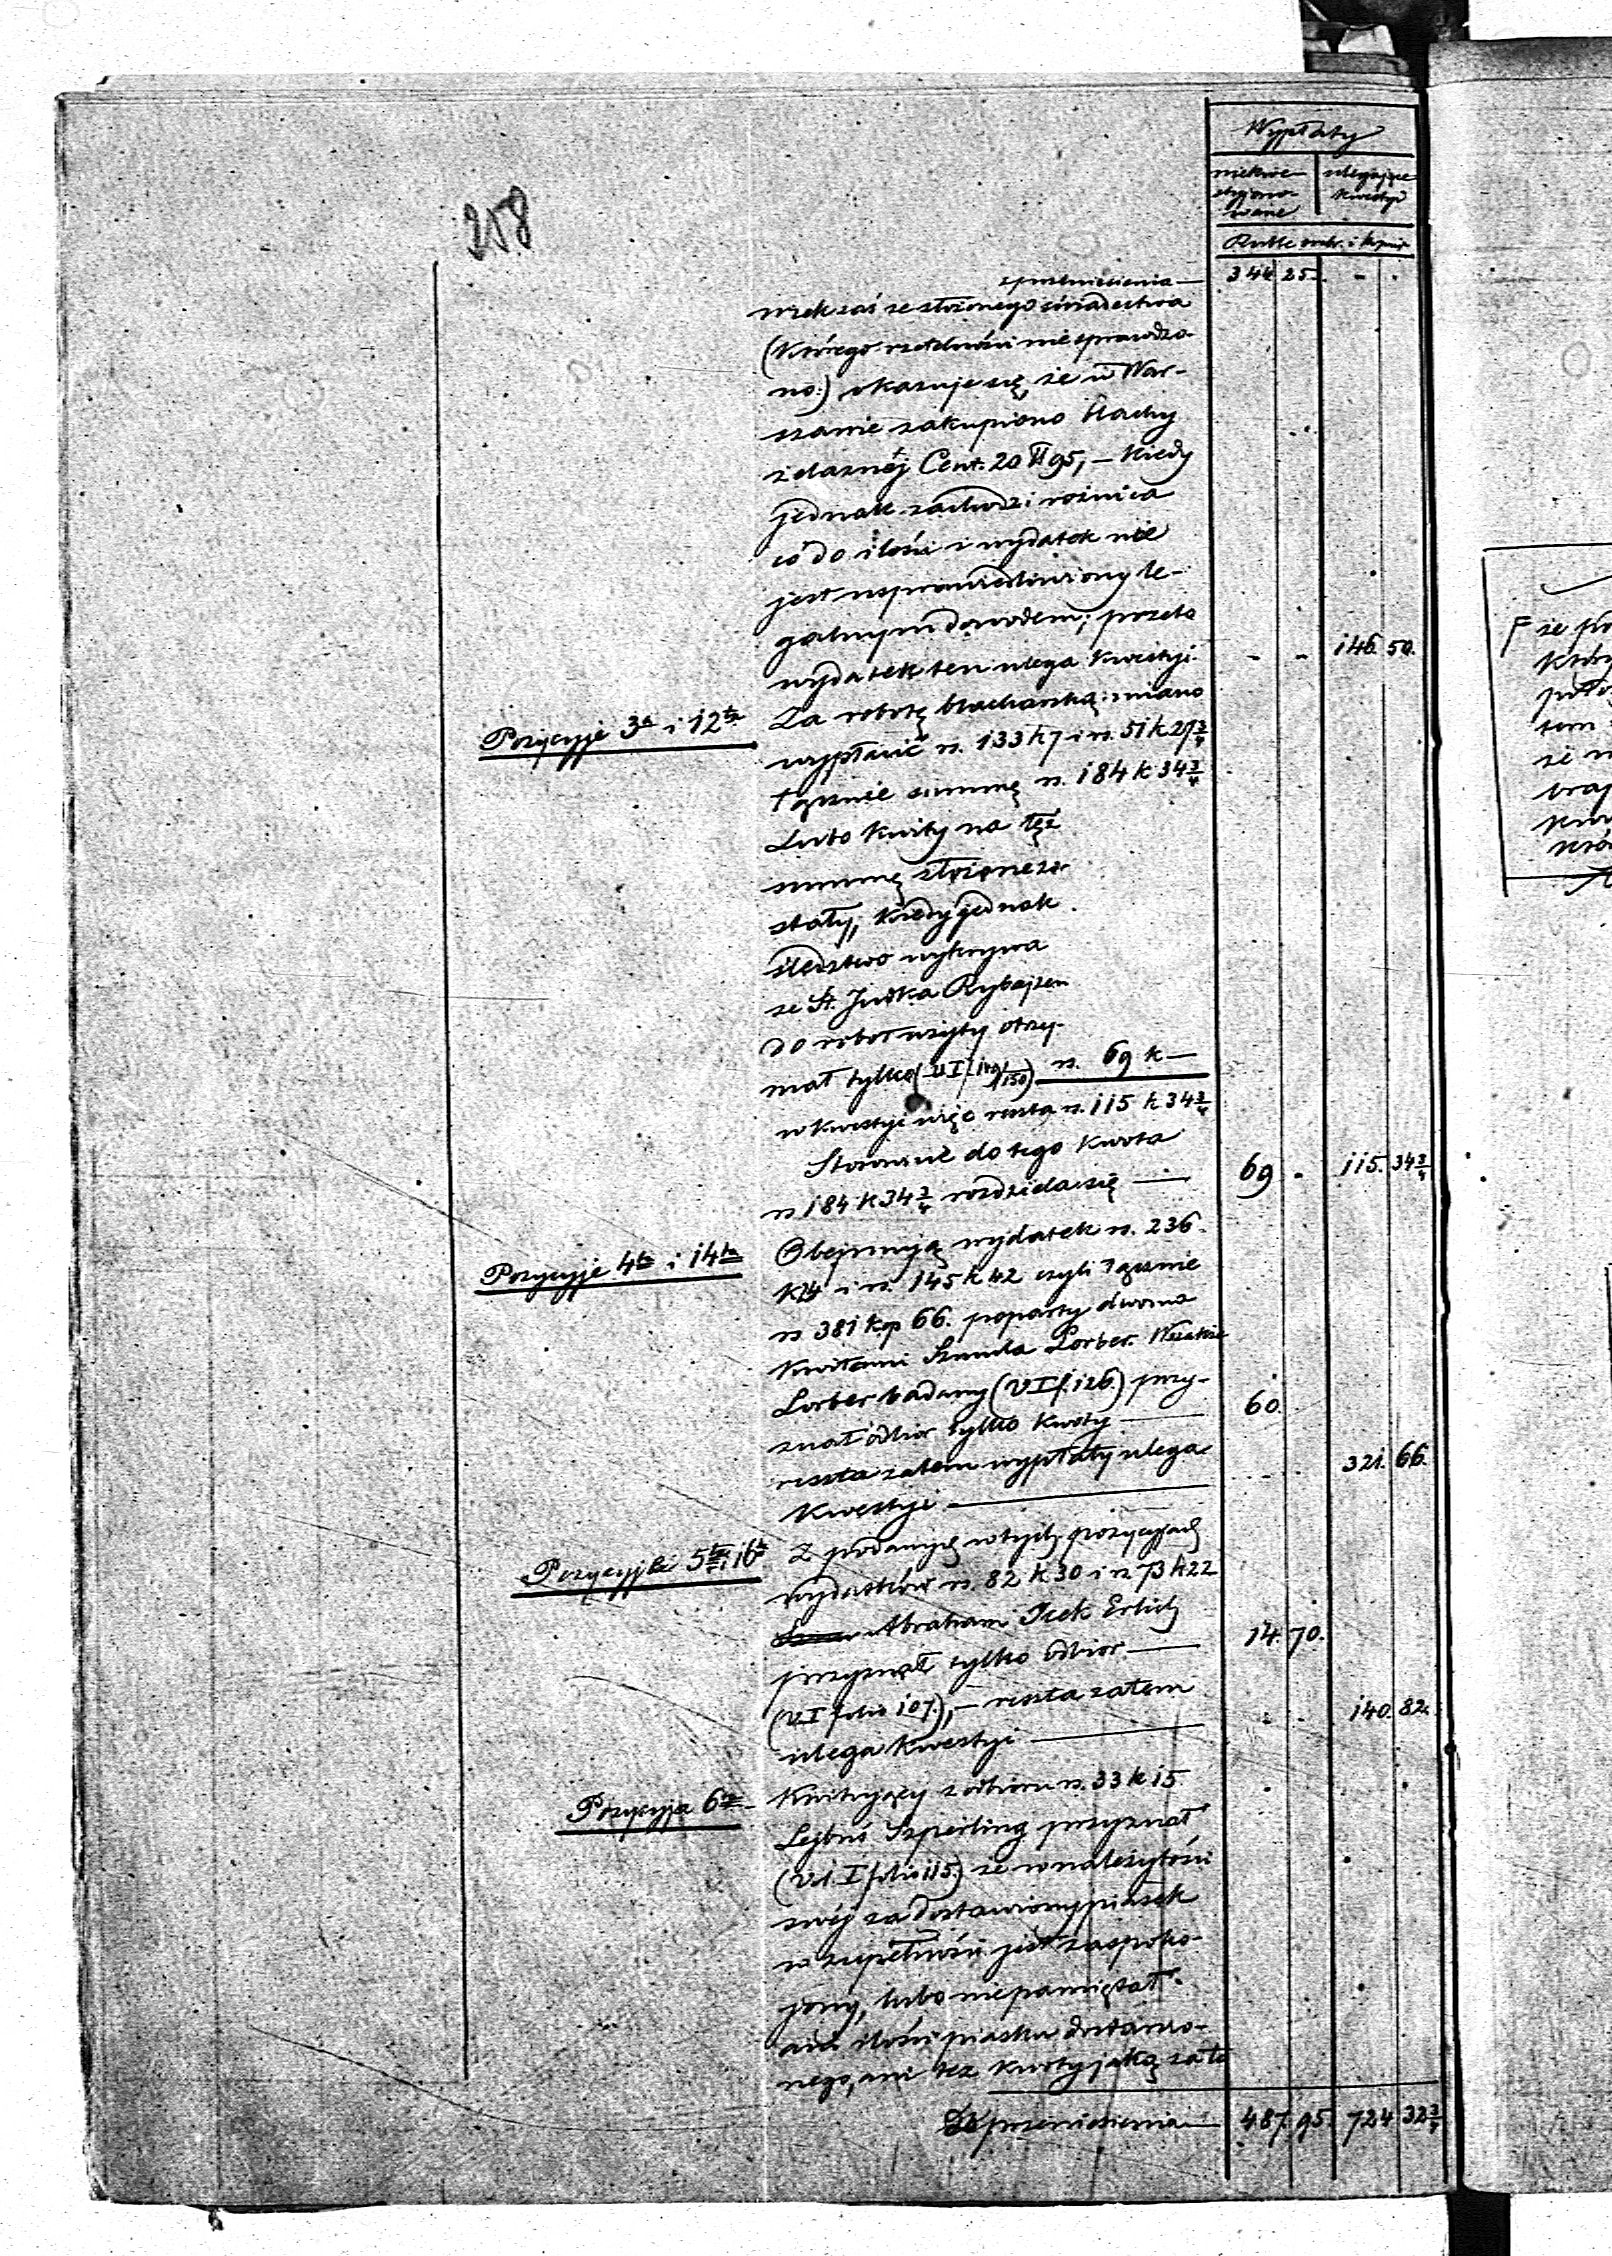 258
Wypłaty
niekwe- ulegające
styjono- kwestyi
wane
Ruble srebr. i kopiejki
z przeniesienia — 344 25 - -
wszak zaś ze złożonego świadectwa
(którego rzetelności nie sprawdzo-
no) okazuje się że w War-
szawie zakupiono blachy
żelaznéj Cent. 20 ℔ 95, — kiedy
jednak zachodzi rożnica
co do ilości i wydatek nie
jest usprawiedliwiony le-
galnym dowodem; przeto
wydatek ten ulega kwestyi. - - 146. 50.
Pozycyje 3a i 12ta Za robotę blacharską miano
wypłacić rs. 133 k 7 i rs. 51 k 27¾
łącznie summę rs. 184 k 34¾
Lubo kwity na tęż
summę złożone zo-
stały, kiedy jednak
śledztwo wykrywa
że St. Judka Rybajzen
do robot użyty otrzy-
mał tylko (V I f 149/150) rs. 69 k —
w kwestyi więc reszta rs. 115 k 34¾
Stosownie do tego kwota
rs 184 k 34¾ rozdziela się — 69 - 115. 34¾
Pozycyje 4ta i 14ta Obejmują wydatek rs. 236.
k 24 i rs. 145 k 42 czyli łącznie
rs 381 kop 66. poparty dwoma
kwitami Szmula Lorber. Wszakże
Lorber badany (V I f. 126.) przy-
znał odbior tylko kwoty — 60.
reszta zatem wypłaty ulega
kwestyi — - - 321. 66.
Pozycyje 5ta i 16ta Z podanych w tych pozycyjach
wydatków rs. 82 k 30 i rs 73 k 22
Abraham Icek Erlich
przyznał tylko odbior — 14. 70.
(V I folio 107.), — reszta zatem
ulega kwestyi — - - 140. 82.
Pozycyja 6ta — Kwitujący z odbioru rs. 33 k 15
Lejbuś Szperling przyznał
(Vol. I folio 115) że w należytości
swéj za dostawiony piasek
w zupełności jest zaspoko-
jony, lubo nie pamiętał
ani ilości piasku dostawio-
nego, ani też kwoty jaką za to
Do przeniesienia — 487. 95. 724 32¾